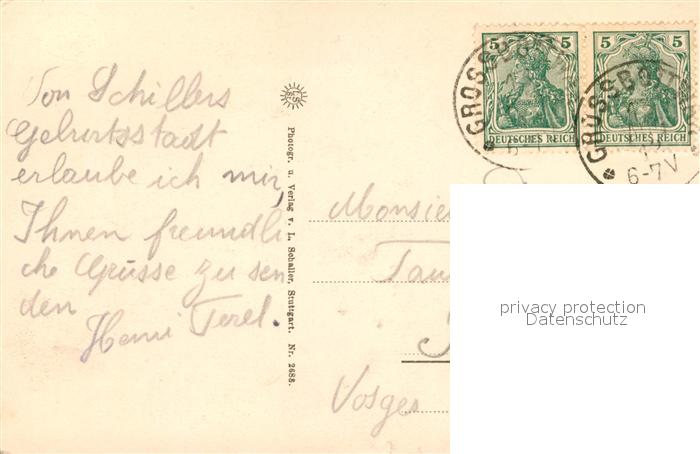 Von Schillers
Geburtsstadt
erlaube ich mir,
Ihnen freundli
che Grüsse zu sen
den
Henri Terel.
Photogr. u. Verlag v. L. Schaller, Stuttgart. Nr. 2688.
5 5
DEUTSCHES REICH
5 5
DEUTSCHES REICH
GROSSBOTTW
GROSSBOTTW
6-7V
Monsie
Vosges
privacy protection
Datenschutz